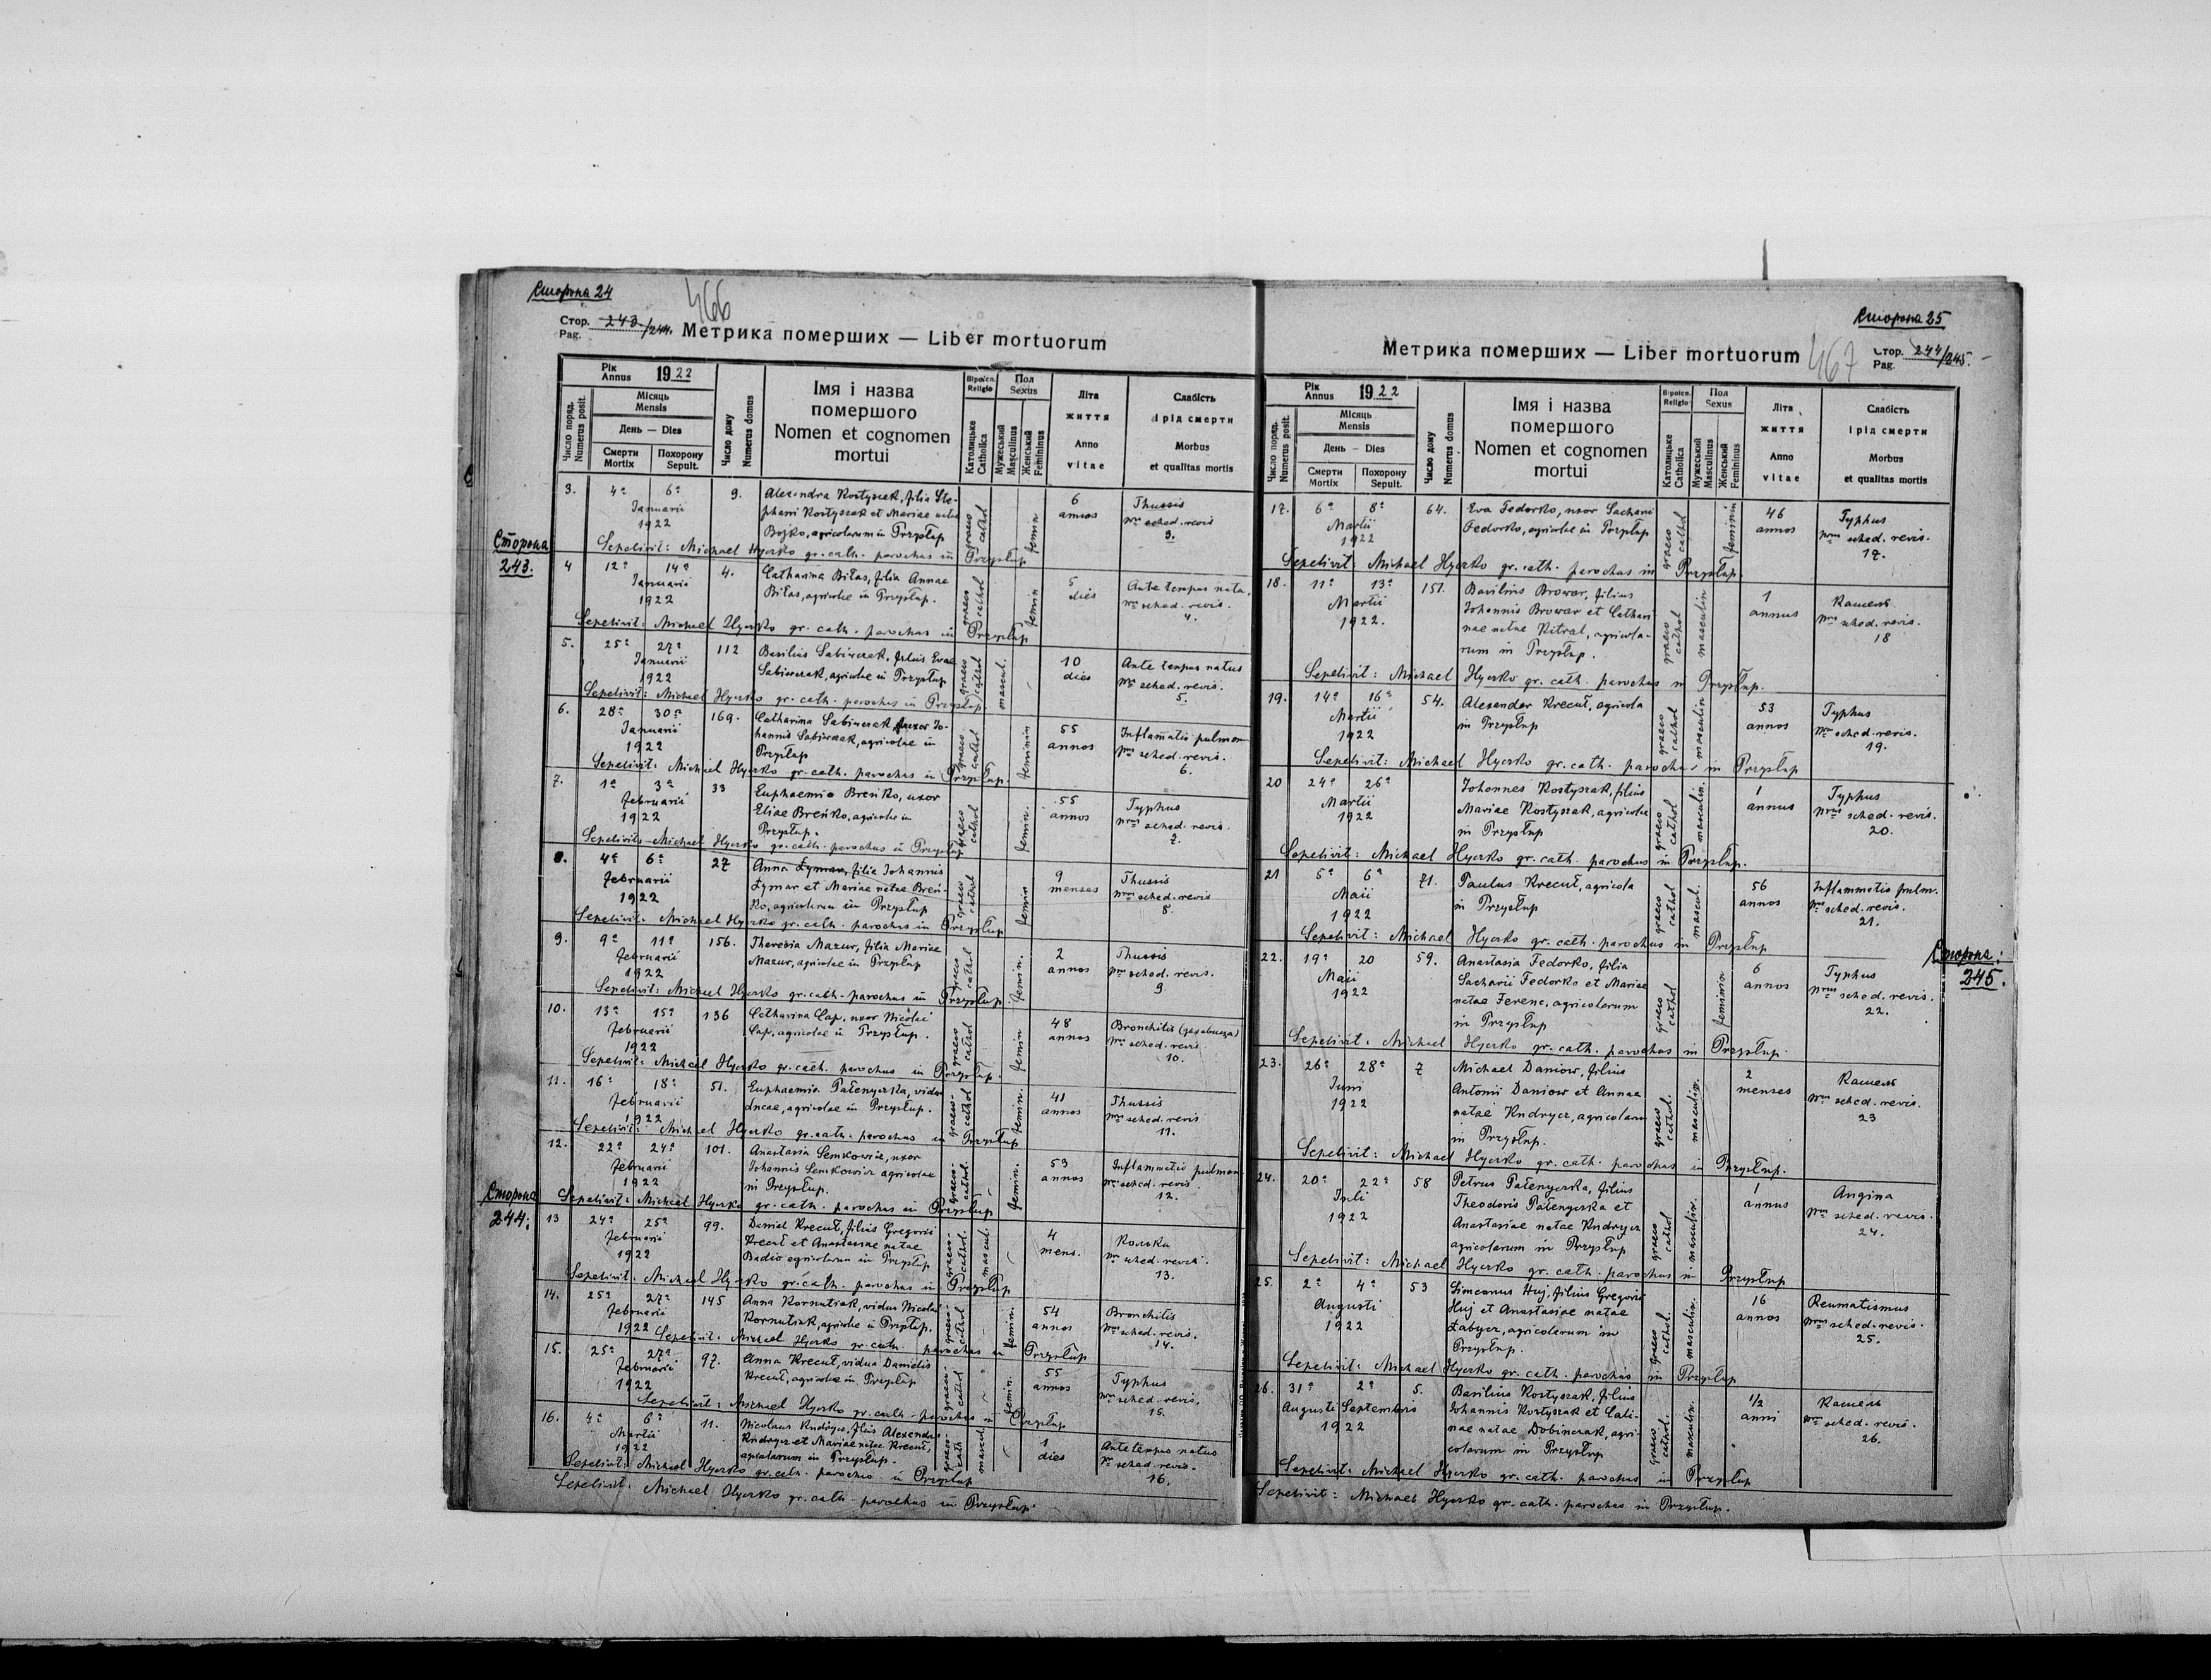 Сторона 24
466
Стор. 243./244.
Pag.
Метрика померших — Liber mortuorum
Рік
Annus 1922
Число поряд.
Numerus posit.
Місяць
Mensis
День — Dies
Смерти
Mortix
Похорону
Sepult.
Число дому
Numerus domus
Імя і назва
помершого
Nomen et cognomen
mortui
Віроісп.
Religio
Католицьке
Catholica
Пол
Sexus
Мужеський
Masculinus
Женський
Femininus
Літа
життя
Anno
vitae
Слабість
і рід смерти
Morbus
et qualitas mortis
Сторона
243.
3. 4a 6a Januarii 1922 9. Alexandra Kostyszak, filia Ste-
phani Kostyszak et Mariae natae
Bojko, agricolarum in Przysłup
graeco cathol femin 6 annos Thussis
nrus sched. revis 3.
Sepelivit: Michael Hyczko gr. cath. parochus in Przysłup
4 12a 14a Januarii 1922 4. Catharina Biłas, filia Annae
Biłas, agricolae in Przysłup.
graeco cathol femin 5 dies Ante tempus nata,
nrus sched. revis. 4.
Sepelivit: Michael Hyczko gr. cath. parochus in Przysłup
5. 25a 27a Januarii 1922 112 Basilius Sabinczak, filius Evae
Sabinczak, agricolae in Przysłup
graeco cathol mascul. 10 dies Ante tempus natus
nrus sched. revis. 5.
Sepelivit: Michael Hyczko gr. cath. parochus in Przysłup.
6. 28a 30a Januarii 1922 169. Catharina Sabinczak, uxor Jo-
hannis Sabinczak, agricolae in
Przysłup
graeco cathol feminin 55 annos Inflamatio pulmon
nrus sched. revis. 6.
Sepelivit: Michael Hyczko gr. cath. parochus in Przysłup.
7. 1a 3a Februarii 1922 33 Euphaemia Breńko, uxor
Eliae Breńko, agricolae in
Przysłup.
graeco cathol femin. 55 annos Typhus
nrus sched. revis. 7.
Sepelivit: Michael Hyczko gr. cath. parochus in Przysłup
8. 4a 6a Februarii 1922 27 Anna Łymar, filia Johannis
Łymar et Mariae natae Breń-
ko, agricolarum in Przysłup
graeco cathol femin 9 menses Thussis
nrus sched. revis 8.
Sepelivit: Michael Hyczko gr. cath. parochus in Przysłup
9. 9a 11a Februarii 1922 156. Theresia Mazur, filia Mariae
Mazur, agricolae in Przysłup
graeco cathol femin. 2 annos Thussis
nrus sched. revis. 9.
Sepelivit: Michael Hyczko gr. cath. parochus in Przysłup.
10. 13a 15a Februarii 1922 136 Catharina Cap, uxor Nicolai
Cap, agricolae in Przysłup.
graeco cathol femin 48 annos Bronchitis
nrus sched. revis 10.
Sepelivit: Michael Hyczko gr. cath. parochus in Przysłup.
11. 16a 18a Februarii 1922 51. Euphaemia Pałenyczka, vidua
Lucae, agricolae in Przysłup.
graeco-cathol femin. 41 annos Thussis
nrus sched. revis 11.
Sepelivit: Michael Hyczko gr. cath. parochus in Przysłup
12. 22a 24a Februarii 1922 101. Anastasia Semkowicz, uxor
Johannis Semkowicz agricolae
in Przysłup.
graeco-cathol. femin. 53 annos Inflammatio pulmon.
nrus sched. revis 12.
Сторона
244.
Sepelivit: Michael Hyczko gr. cath. parochus in Przysłup
13 24a 25a Februarii 1922 99. Daniel Krecuł, filius Gregorii
Krecuł et Anastasiae natae
Badio agricolarum in Przysłup
graeco-cathol. mascul. 4 mens. Колька
nrus sched. revis. 13.
Sepelivit: Michael Hyczko gr. cath. parochus in Przysłup
14. 25a 27a Februarii 1922 145 Anna Kornutiak, vidua Nicolai
Kornutiak, agricolae in Przysłup.
graeco-cathol femin. 54 annos Bronchitis
nrus sched. revis. 14.
Sepelivit: Michael Hyczko gr. cath. parochus in Przysłup
15. 25a 27a Februarii 1922 97. Anna Krecuł, vidua Danielis
Krecuł, agricolae in Przysłup
graeco-cathol femin. 55 annos Typhus
nrus sched. revis. 15.
Sepelivit: Michael Hyczko gr. cath. parochus in Przysłup
16. 4a 6a Martii 1922 11. Nicolaus Kndrycz, filius Alexandri
Kndrycz et Mariae natae Krecuł,
agricolarum in Przysłup.
graeco-cath mascul. 1 dies Ante tempus natus
nrus sched. revis. 16.
Sepelivit: Michael Hyczko gr. cath. parochus in Przysłup
Sepelivit: Michael Hyczko gr. cath. parochus in Przysłup.
Сторона 25
Метрика померших — Liber mortuorum
467
Стор. 244/245.
Pag.
Рік
Annus 1922
Число поряд.
Numerus posit.
Місяць
Mensis
День — Dies
Смерти
Mortix
Похорону
Sepult.
Число дому
Numerus domus
Імя і назва
помершого
Nomen et cognomen
mortui
Віроісп.
Religio
Католицьке
Catholica
Пол
Sexus
Мужеський
Masculinus
Женський
Femininus
Літа
життя
Anno
vitae
Слабість
і рід смерти
Morbus
et qualitas mortis
17. 6a 8a Martii 1922 64. Eva Fedorko, uxor Sachani
Fedorko, agricolae in Przysłup
graeco cathol feminin 46 annos Typhus
nrus sched. revis. 17.
Sepelivit: Michael Hyczko gr. cath. parochus in Przysłup.
18. 11a 13a Martii 1922. 151. Basilius Browar, filius
Johannis Browar et Cathari
nae natae Kitral, agricola-
rum in Przysłup.
graeco cathol masculin 1 annus Кашель
nrus sched. revis. 18
Sepelivit: Michael Hyczko gr. cath. parochus in Przysłup.
19. 14a 16a Martii 1922 54. Alexander Krecuł, agricola
in Przysłup
graeco cathol masculin 53 annos Typhus
nrus sched. revis. 19.
Sepelivit: Michael Hyczko gr. cath. parochus in Przysłup
20 24a 26a Martii 1922 Johannes Kostyszak, filius
Mariae Kostyszak, agricolae
in Przysłup
graeco cathol masculin. 1 annus Typhus
nrus sched. revis. 20.
Sepelivit: Michael Hyczko gr. cath. parochus in Przysłup.
21 5a 6a Maii 1922 71. Paulus Krecuł, agricola
in Przysłup
graeco cathol mascul. 56 annos Inflammatio pulm.
nrus sched. revis. 21.
Sepelivit: Michael Hyczko gr. cath. parochus in Przysłup
Сторона:
245.
22. 19a 20 Maii 1922 59. Anastasia Fedorko, filia
Sacharii Fedorko et Mariae
natae Ferenc, agricolarum
in Przysłup
graeco cathol feminin 6 annos Typhus
nrus sched. revis. 22.
Sepelivit: Michael Hyczko gr. cath. parochus in Przysłup.
23. 26a 28a Juni 1922 7 Michael Daniow, filius
Antonii Daniow et Annae
natae Kndrycz, agricolarum
in Przysłup.
graeco cathol. masculin. 2 menses Кашель
nrus sched. revis. 23
Sepelivit: Michael Hyczko gr. cath. parochus in Przysłup.
24. 20a 22a Juli 1922 58 Petrus Pałenyczka, filius
Theodoris Pałenyczka et
Anastasiae natae Kndrycz
agricolarum in Przysłup
graeco cathol masculin. 1 annus Angina
nrus sched. revis. 24.
Sepelivit: Michael Hyczko gr. cath. parochus in Przysłup
25. 2a 4a Augusti 1922 53 Simeonus Huj, filius Gregorii
Huj et Anastasiae natae
Łabycz, agricolarum in
Przysłup.
graeco cathol. masculin. 16 annos Reumatismus
nrus sched. revis. 25.
Sepelivit: Michael Hyczko gr. cath. parochus in Przysłup
26. 31a 2a Augusti Septembris 1922 5. Basilius Kostyszak, filius
Johannis Kostyszak et Cali-
nae natae Dobinczak, agri-
colarum in Przysłup
graeco cathol. masculin. 1/2 anni Кашель
nrus sched. revis. 26.
Sepelivit: Michael Hyczko gr. cath. parochus in Przysłup
Sepelivit: Michael Hyczko gr. cath. parochus in Przysłup.